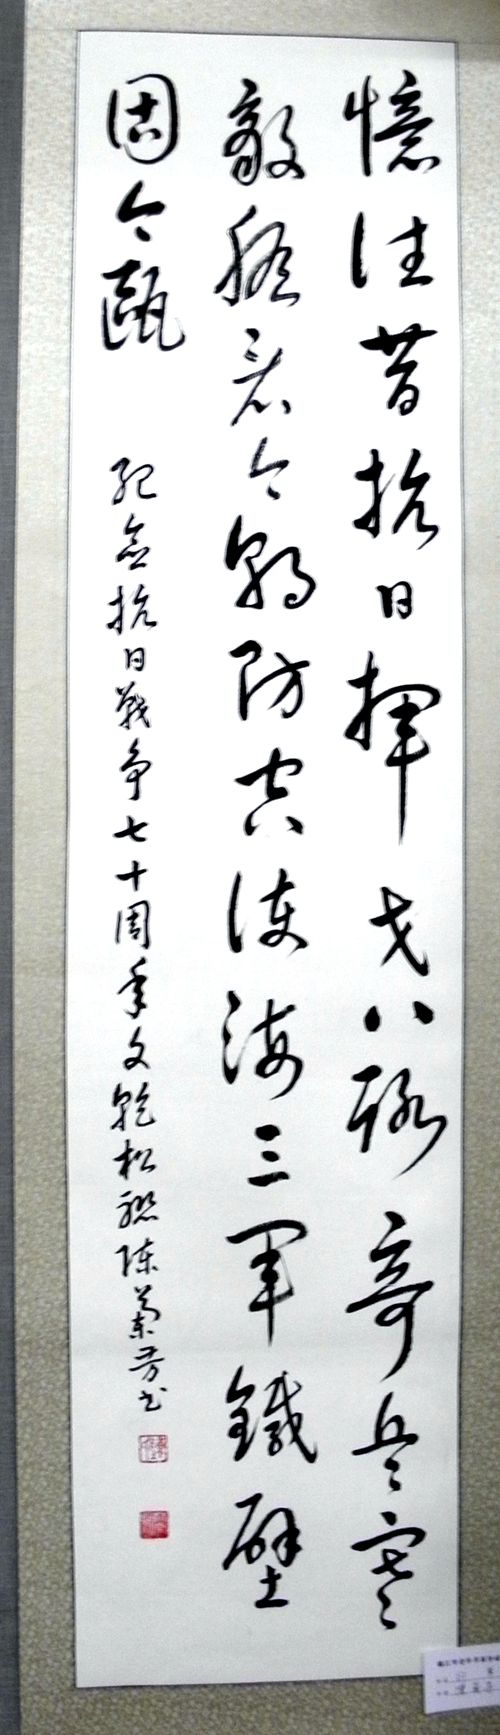 憶往昔抗日揮戈八路奇兵寒
敵膽看今朝防空陸海三軍鐵壁
固金甌
紀念抗日戰爭七十周年文乾松聯陳菊芳书